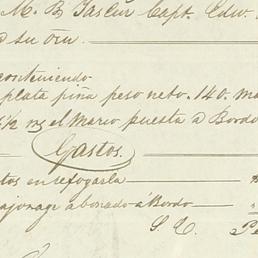 M. B. Taslur Capt. Edw.
d su óru
conteniendo
plata piña peso neto. 140. ma
5½ rs el Marco puesta á Bordo
Gastos.
tos en refogarla
ajonage abonado á Bordo
S. E. Pe